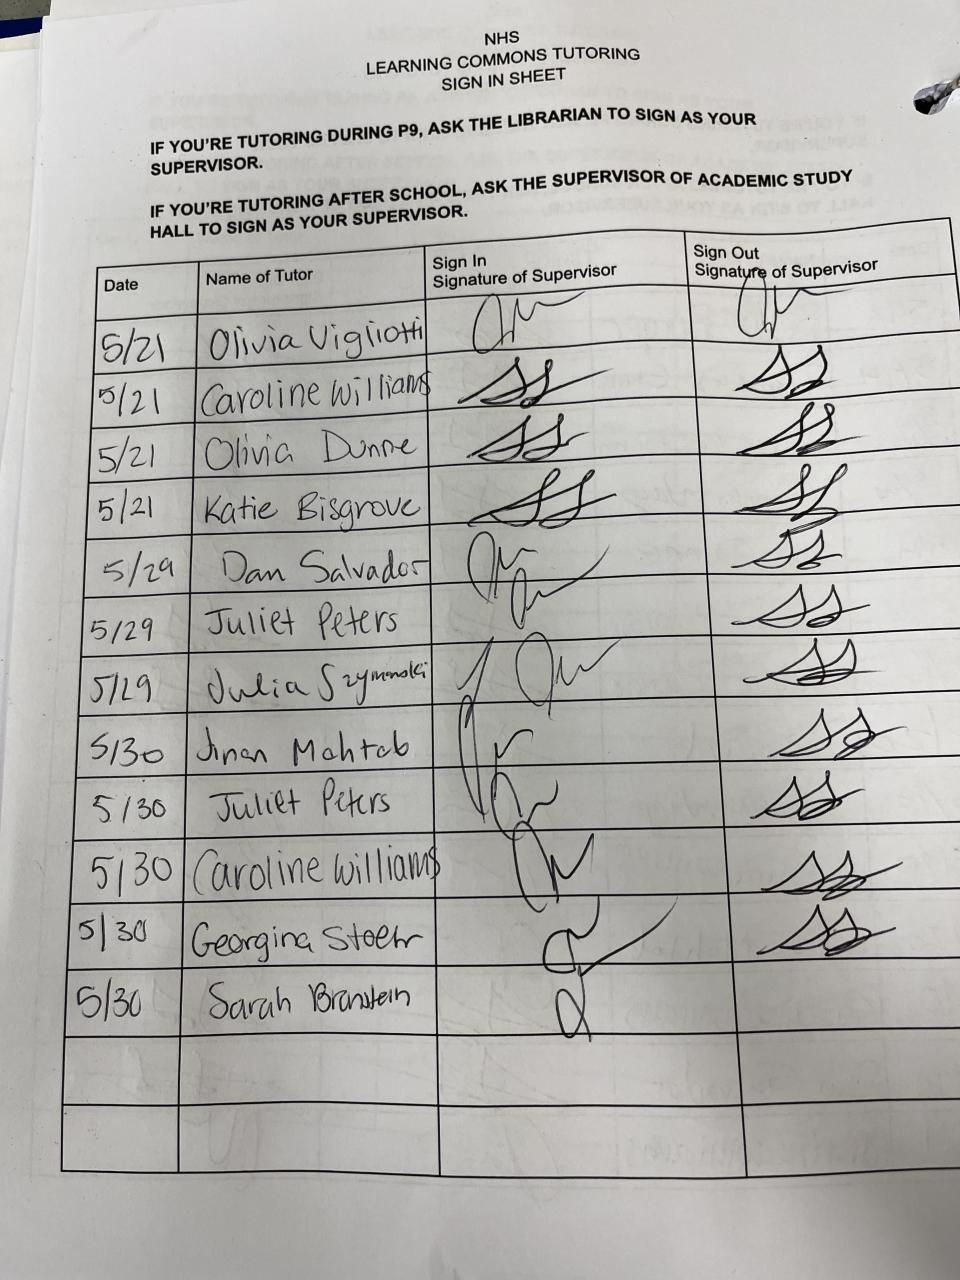 NHS
LEARNING COMMONS TUTORING
SIGN IN SHEET
IF YOU'RE TUTORING DURING P9, ASK THE LIBRARIAN TO SIGN AS YOUR
SUPERVISOR.
IF YOU'RE TUTORING AFTER SCHOOL, ASK THE SUPERVISOR OF ACADEMIC STUDY
HALL TO SIGN AS YOUR SUPERVISOR.
Date Name of Tutor Sign In Signature of Supervisor Sign Out Signature of Supervisor
5/21 Olivia Vigliotti
5/21 Caroline Williams
5/21 Olivia Dunne
5/21 Katie Bisgrove
5/29 Dan Salvador
5/29 Juliet Peters
5/29 Julia Szymanski
5/30 Jinan Mahtab
5/30 Juliet Peters
5/30 Caroline Williams
5/30 Georgina Stoehr
5/30 Sarah Branstein